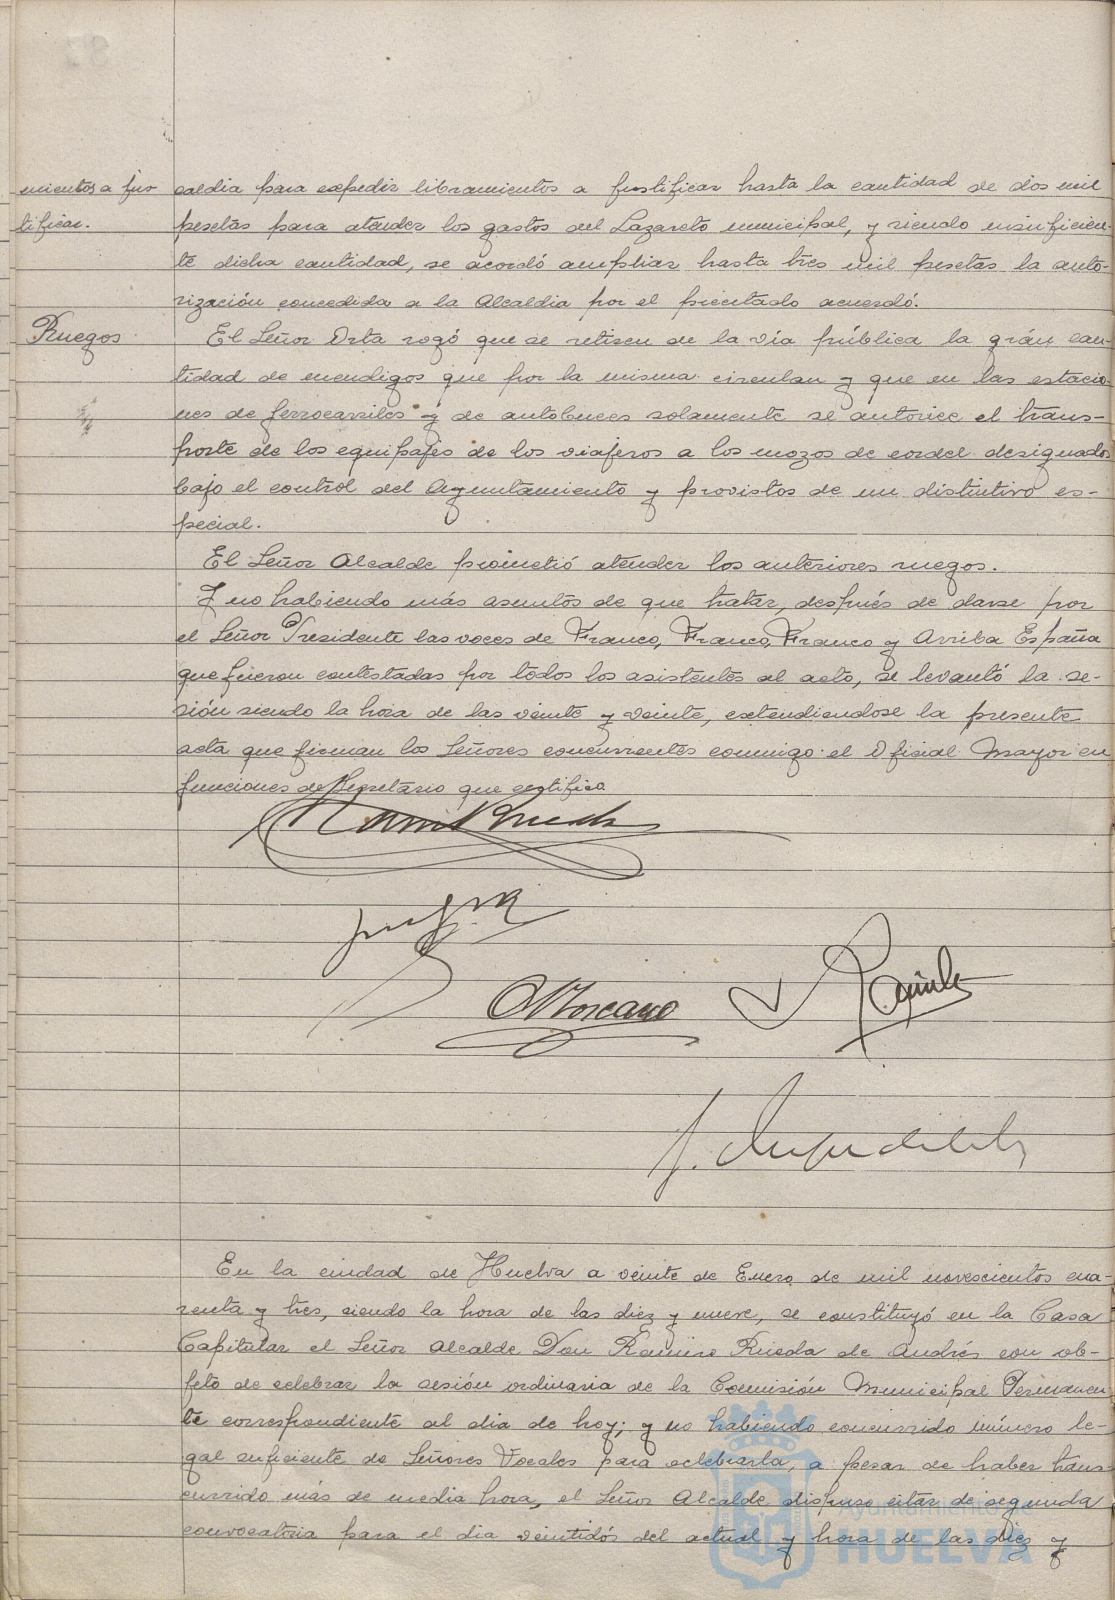 mientos a jus-
tificar.
caldia para expedir libramientos a justificar hasta la cantidad de dos mil
pesetas para atender los gastos del Lazareto municipal, y siendo insuficien-
te dicha cantidad, se acordó ampliar hasta tres mil pesetas la auto-
rización concedida a la Alcaldia por el precitado acuerdó.
Ruegos
El Señor Orta rogó que se retiren de la via pública la grán can-
tidad de mendigos que por la misma circulan y que en las estacio-
nes de ferrocarriles y de autobuces solamente se autorice el trans-
porte de los equipajes de los viajeros a los mozos de cordel designados
bajo el control del Ayuntamiento y provistos de un distintivo es-
pecial.
El Señor Alcalde prometió atender los anteriores ruegos.
Y no habiendo más asuntos de que tratar, después de darse por
el Señor Presidente las voces de Franco, Franco, Franco y Arriba España
que fueron contestadas por todos los asistentes al acto, se levantó la se-
sión siendo la hora de las veinte y veinte, extendiendose la presente
acta que firman los Señores concurrentes conmigo el Oficial Mayor en
funciones de Secretario que certifico.
En la ciudad de Huelva a veinte de Enero de mil novescientos cua-
renta y tres, siendo la hora de las diez y nueve, se constituyó en la Casa
Capitular el Señor Alcalde Don Ramiro Rueda de Andrés con ob-
jeto de celebrar la sesión ordinaria de la Comisión Municipal Permanen-
te correspondiente al dia de hoy; y no habiendo concurrido número le-
gal suficiente de Señores Vocales para celebrarla, a pesar de haber trans-
currido más de media hora, el Señor Alcalde dispuso citar de segunda
convocatoria para el dia veintidós del actual y hora de las diez y
Ayuntamiento de
HUELVA